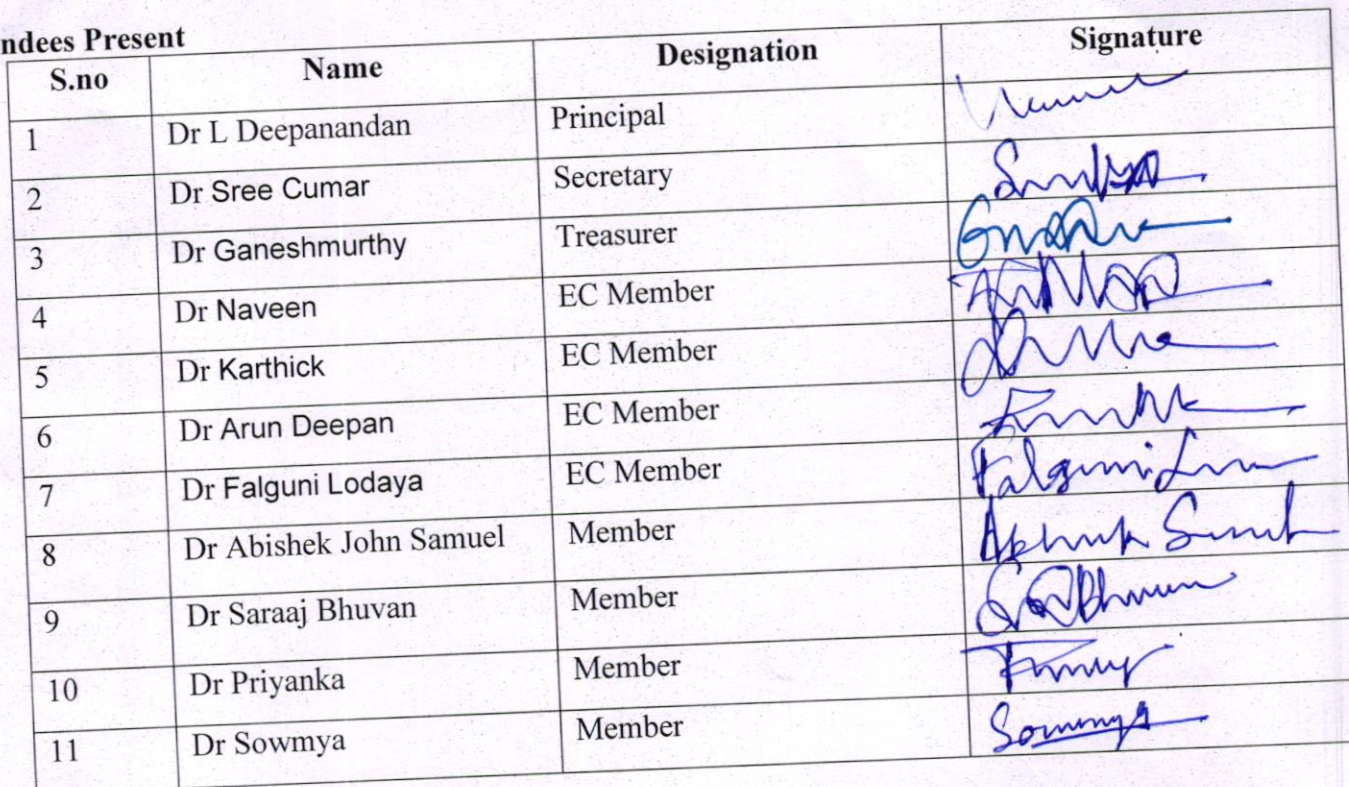 ndees Present
S.no Name Designation Signature
1 Dr L Deepanandan Principal
2 Dr Sree Cumar Secretary
3 Dr Ganeshmurthy Treasurer
4 Dr Naveen EC Member
5 Dr Karthick EC Member
6 Dr Arun Deepan EC Member
7 Dr Falguni Lodaya EC Member Falguni
8 Dr Abishek John Samuel Member
9 Dr Saraaj Bhuvan Member
10 Dr Priyanka Member
11 Dr Sowmya Member Sowmya